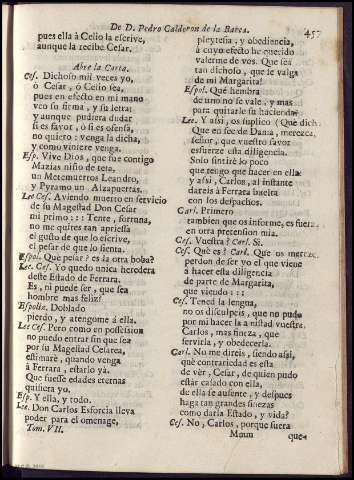 De D. Pedro Calderon de la Barca.
457
pues ella à Celio la escrive,
aunque la recibe Cesar.
Abre la Carta.
Ces. Dichoso mil veces yo,
ò Cesar, ò Celio sea,
pues en efecto en mi mano
veo su firma, y su letra:
y aunque pudiera dudar
si es favor, ò si es ofensa,
no quiero: venga la dicha,
y como viniere venga.
Esp. Vive Dios, que fue conmigo
Mazias niño de teta,
un Metemuertos Leandro,
y Pyramo un Alzapuertas.
Lee Ces. Aviendo muerto en servicio
de su Magestad Don Cesar
mi primo::: Tente, fortuna,
no me quites tan apriessa
el gusto de que lo escrive,
el pesar de que lo sienta.
Espol. Què pesar? es la otra boba?
Lee Ces. Yo quedo unica heredera
deste Estado de Ferrara.
Es, ni puede ser, que sea
hombre mas feliz?
Espolin. Doblado
pierdo, y atengome à ella.
Lee Ces. Pero como en possession
no puedo entrar sin que sea
por su Magestad Cesarea,
estimarè, quando venga
à Ferrara, estarlo yà.
Que fuesse edades eternas
quisiera yo.
Esp. Y ella, y todo.
Lee. Don Carlos Esforcia lleva
poder para el omenage,
Tom. VII.
pleytesia, y obediencia,
à cuyo efecto he querido
valerme de vos. Que sea
tan dichoso, que le valga
de mi Margarita!
Espol. Què hembra
de uno no se vale, y mas
para quitarle su hacienda?
Lee. Y assi, os suplico (Què dicha!
Que en fee de Dama, merezca,
señor, que vuestro favor
esfuerce esta diligencia.
Solo sintirè lo poco
que tengo que hacer en ella:
y assi, Carlos, al instante
dareis à Ferrara buelta
con los despachos.
Carl. Primero
tambien que os informe, es fuerza
en otra pretension mia.
Ces. Vuestra? Carl. Si.
Ces. Què es? Carl. Que os merezca
perdon de ser yo el que viene
à hacer esta diligencia
de parte de Margarita,
que viendo:::
Ces. Tened la lengua,
no os disculpeis, que no pudo
por mi hacer la amistad vuestra,
Carlos, mas fineza, que
servirla, y obedecerla.
Carl. No me direis, siendo assi,
què contrariedad es esta
de vèr, Cesar, de quien pudo
estàr casado con ella,
de ella se ausente, y despues
haga tan grandes finezas
como darla Estado, y vida?
Ces. No, Carlos, porque fuera
Mmm
que-